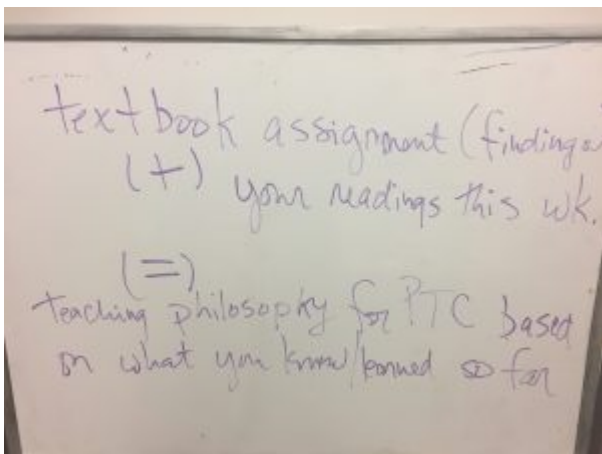 textbook assignment (finding a
(+)
your readings this wk.
(=)
teaching philosophy for PTC based
on what you know/learned so far